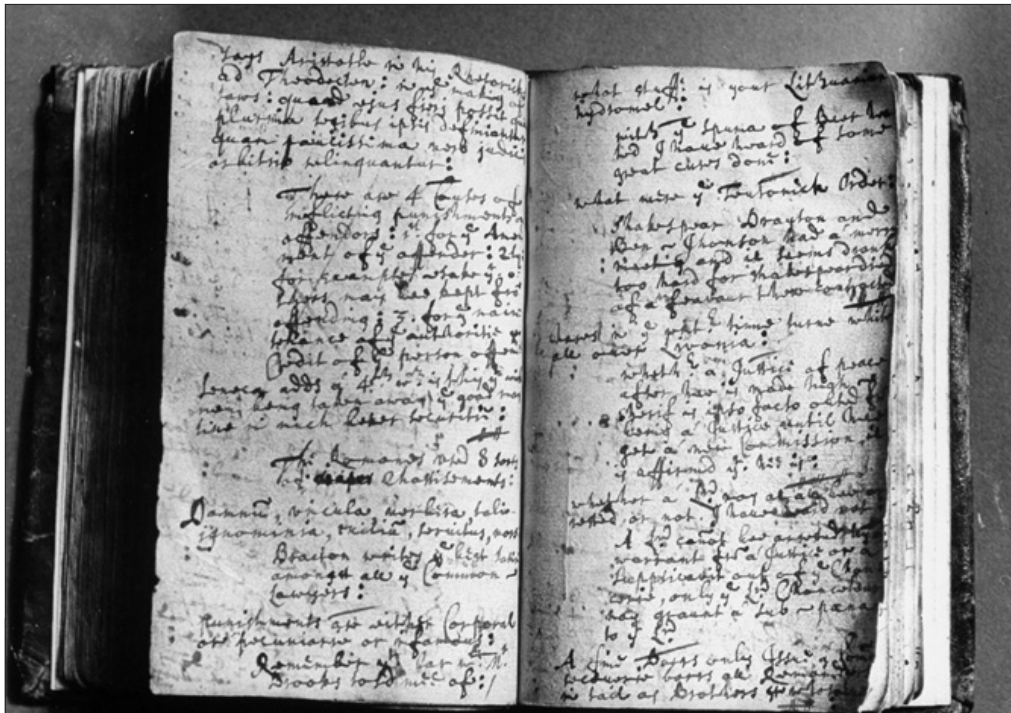 says Aristotle in his Rhetorick
ad Theodecten: in yᵉ making of
laws: quoad eius fieri possit
plurima legibus ipsis definiantur
quam paucissima judicis
arbitrio relinquantur:
There are 4 Causes of
inflicting punishments
offendors: 1ˢᵗ for yᵉ Amen
ment of yᵉ offender: 2ly
for example sake yᵗ
others may bee kept frõ
offending: 3. for yᵉ main
tenance of yᵉ authoritie
Credit of yᵉ person offen
Seneca adds a 4ᵗʰ wᶜʰ is
men being taken away yᵉ good may
live in much better securitie:
The Romanes used 8 sorts
of Chastisements:
Damnũ, vincula verbera talio
ignominia, exiliũ, servitus, mors
Bracton writes yᵉ best
amongst all yᵉ Common
Lawyers:
Punishments are either Corporal
or pecuniarie or infamous:
Remember yᵗ Mʳ
Brooks told mee of:/
what stuff: is your Lithuanian
hydromel:
with yᵉ spuma of Beer
I have heard of some
great cures done:
what were yᵉ Teutonick Order:
Shakespear Drayton and
Ben Jhonson had a merry
meeting and it seems drank
too hard for Shakespear died
of a feavour there contracted
Hares in yᵉ time turne white
all over Livonia:
whethʳ a Justice of peace
after hee is made high
Sherif is ipso facto
being a Justice until hee
get a new Commission,
is affirmed yᵗ hee is:
whether a Lᵈ may at all bee ar
rested, or not, I have heard not
A Lᵈ cañot bee arrested by
warrant frõ a Justice or a
Supplicavit out of yᵉ Chan
cerie, only yᵉ Lᵈ Chancelour
may graunt a Sub-pæna
to yᵉ Lᵈ
A fine Barrs only Issue
recoverie barrs all Remain
in tail as Brothers